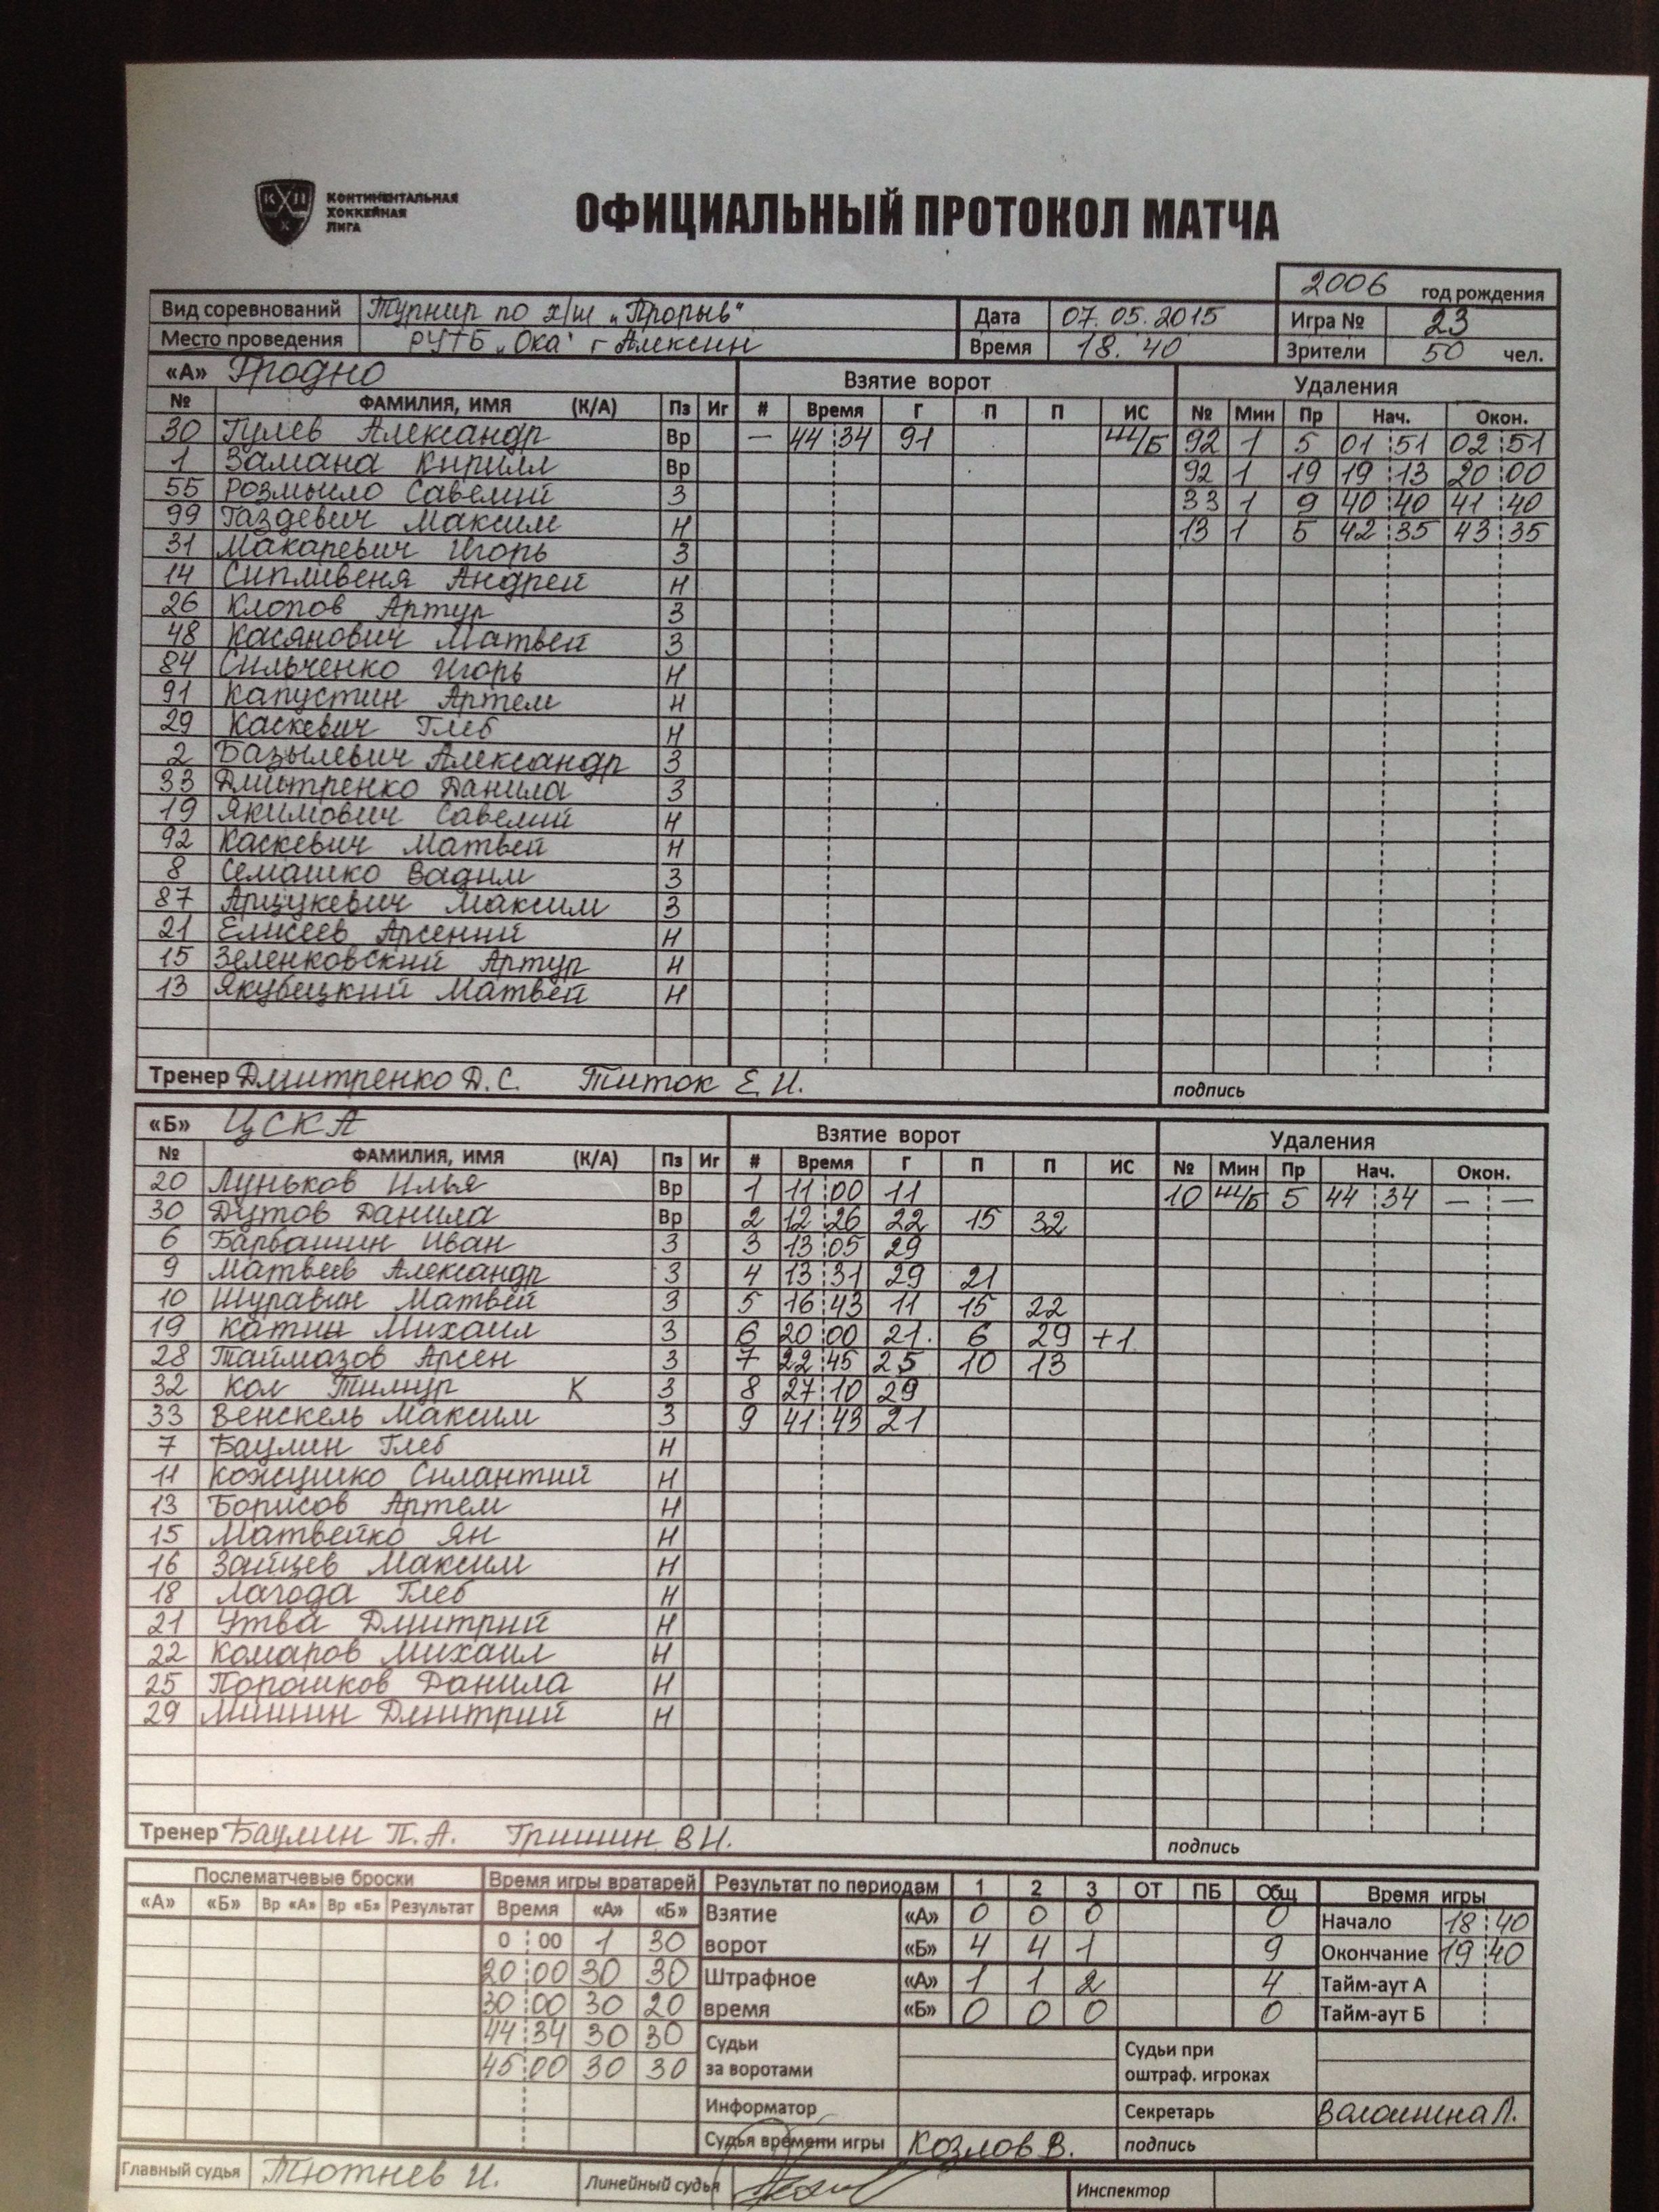 КОНТИНЕНТАЛЬНАЯ
ХОККЕЙНАЯ
ЛИГА
ОФИЦИАЛЬНЫЙ ПРОТОКОЛ МАТЧА
2006 год рождения
Вид соревнований Турнир по х/ш „Прорыв" Дата 07.05.2015 Игра № 23
Место проведения РУТБ „Ока" г Алексин Время 18.40 Зрители 50 чел.
«А» Гродно Взятие ворот Удаления
№ ФАМИЛИЯ, ИМЯ (К/А) Пз Иг # Время Г П П ИС № Мин Пр Нач. Окон.
30 Гулев Александр Вр — 44 34 91 ШБ 92 1 5 01 51 02 51
1 Замана Кирилл Вр 92 1 19 19 13 20 00
55 Розмыло Савелий З 33 1 9 40 40 41 40
99 Газдевич Максим Н 13 1 5 42 35 43 35
31 Макаревич Игорь З
14 Сипливеня Андрей Н
26 Клопов Артур З
48 Касянович Матвей З
84 Сильченко Игорь Н
91 Капустин Артем Н
29 Каскевич Глеб Н
2 Базылевич Александр З
33 Дмитренко Данила З
19 Якимович Савелий Н
92 Каскевич Матвей Н
8 Семашко Вадим З
87 Арцукевич Максим З
21 Елисеев Арсений Н
15 Зеленковский Артур Н
13 Якубецкий Матвей Н
Тренер Дмитренко Д.С. Титок Е.И. подпись
«Б» ЦСКА Взятие ворот Удаления
№ ФАМИЛИЯ, ИМЯ (К/А) Пз Иг # Время Г П П ИС № Мин Пр Нач. Окон.
20 Луньков Илья Вр 1 11 00 11 10 ШБ 5 44 34 — —
30 Дутов Данила Вр 2 12 26 22 15 32
6 Барбашин Иван З 3 13 05 29
9 Матвеев Александр З 4 13 31 29 21
10 Журавин Матвей З 5 16 43 11 15 22
19 Катин Михаил З 6 20 00 21 6 29 +1
28 Таймазов Арсен З 7 22 45 25 10 13
32 Кол Тимур К З 8 27 10 29
33 Венскель Максим З 9 41 43 21
7 Баулин Глеб Н
11 Кожушко Силантий Н
13 Борисов Артем Н
15 Матвейко Ян Н
16 Зайцев Максим Н
18 Лагода Глеб Н
21 Утва Дмитрий Н
22 Комаров Михаил Н
25 Порошков Данила Н
29 Мишин Дмитрий Н
Тренер Баулин П.А. Гришин В.И. подпись
Послематчевые броски Время игры вратарей Результат по периодам 1 2 3 ОТ ПБ Общ Время игры
«А» «Б» Вр «А» Вр «Б» Результат Время «А» «Б» Взятие «А» 0 0 0 0 Начало 18 40
0 00 1 30 ворот «Б» 4 4 1 9 Окончание 19 40
20 00 30 30 Штрафное «А» 1 1 2 4 Тайм-аут А
30 00 30 20 время «Б» 0 0 0 0 Тайм-аут Б
44 34 30 30 Судьи Судьи при
45 00 30 30 за воротами оштраф. игроках
Информатор Секретарь
Судья времени игры Козлов В. подпись
Главный судья Тютнев И. Линейный судья Инспектор